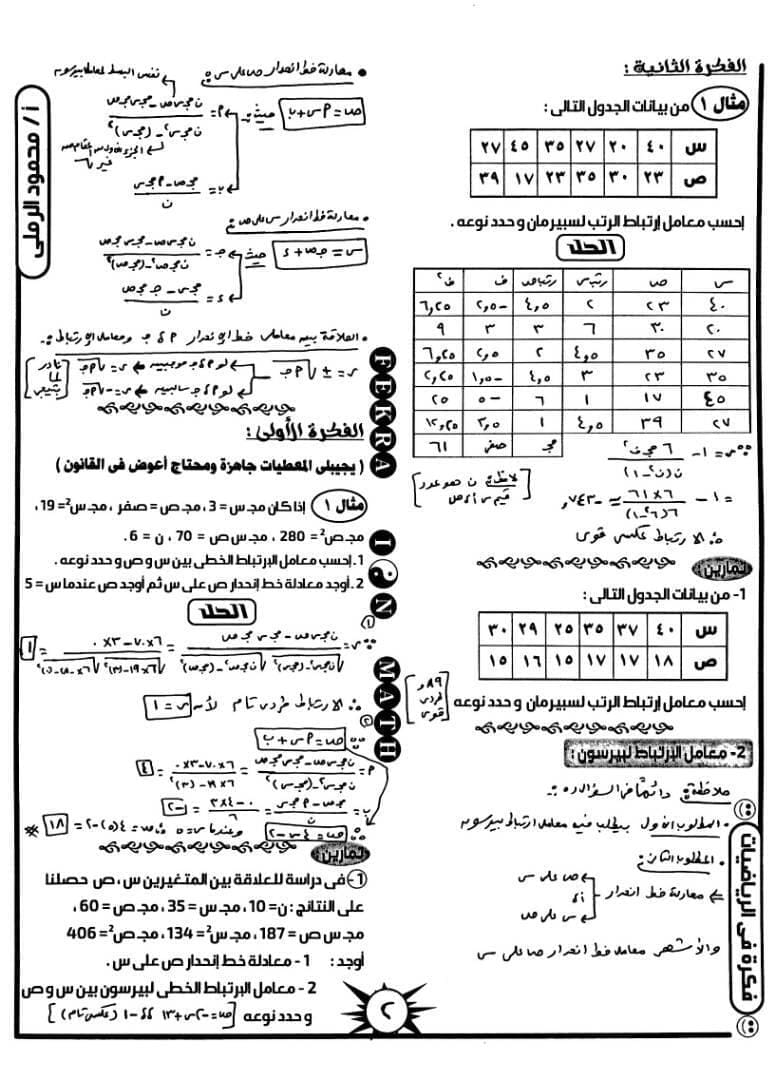 الفكرة الثانية :
مثال ١ من بيانات الجدول التالى :
س ٤٠ ٢٠ ٢٧ ٣٥ ٤٥ ٢٧
ص ٢٣ ٣٠ ٣٥ ٢٣ ١٧ ٣٩
إحسب معامل إرتباط الرتب لسبيرمان و حدد نوعه .
الحل
س ص رتب س رتب ص ف ف٢
٤٠ ٢٣ ٢ ٤,٥ -٢,٥ ٦,٢٥
٢٠ ٣٠ ٦ ٣ ٣ ٩
٢٧ ٣٥ ٤,٥ ٢ ٢,٥ ٦,٢٥
٣٥ ٢٣ ٣ ٤,٥ -١,٥ ٢,٢٥
٤٥ ١٧ ١ ٦ -٥ ٢٥
٢٧ ٣٩ ٤,٥ ١ ٣,٥ ١٢,٢٥
مجـ صفر ٦١
∵ ر = ١ - ٦ مجـ ف٢ / ن(ن٢-١)
= ١ - ٦×٦١ / ٦(٦٢-١) = -٠,٧٤٣
لاحظ ن هو عدد قيم س أو ص
∴ الارتباط عكسى قوى
تمارين
1- من بيانات الجدول التالى :
س ٤٠ ٣٧ ٣٥ ٢٥ ٢٩ ٣٠
ص ١٨ ١٧ ١٧ ١٥ ١٦ ١٥
إحسب معامل إرتباط الرتب لسبيرمان و حدد نوعه
٨٩,و طردى قوى
2- معامل الإرتباط لبيرسون :
ملاحظة دائمًا فى السؤال ده :-
• المطلوب الأول بيطلب فيه معامل ارتباط بيرسون
• المطلوب الثانى :
⇐ معادلة خط انحدار
ص على س
أو
س على ص
والأشهر معادلة خط انحدار ص على س
فكرة فى الرياضيات
أ / محمود الرملى
• معادلة خط انحدار ص على س :
ص = م س + ب حيث :-
نفس البسط لمعامل بيرسون
م = ن مجـ س ص - مجـ س مجـ ص / ن مجـ س٢ - (مجـ س)٢
ب = مجـ ص - م مجـ س / ن
• معادلة خط انحدار س على ص :
س = جـ ص + د حيث
جـ = ن مجـ س ص - مجـ س مجـ ص / ن مجـ ص٢ - (مجـ ص)٢
د = مجـ س - جـ مجـ ص / ن
• العلاقة بين معاملى خط الانحدار م ، جـ ومعامل الارتباط :-
ر = ± √م جـ
لو م ، جـ موجبين ⇐ ر = √م جـ
لو م ، جـ سالبين ⇐ ر = -√م جـ
نادر لما بتيجى
الفكرة الأولى :
( يجيبلى المعطيات جاهزة ومحتاج أعوض فى القانون )
مثال ١ إذا كان مجـ س = 3 ، مجـ ص = صفر ، مجـ س²= 19 ،
مجـ ص²= 280 ، مجـ س ص = 70 ، ن = 6 .
1. إحسب معامل الإرتباط الخطى بين س و ص و حدد نوعه .
2. أوجد معادلة خط إنحدار ص على س ثم أوجد ص عندما س = 5
الحل
(١)
∵ ر = ن مجـ س ص - مجـ س مجـ ص / √ن مجـ س٢-(مجـ س)٢ √ن مجـ ص٢-(مجـ ص)٢ = ٦×٧٠-٣×٠ / √٦×١٩-(٣)٢ √٦×٢٨٠-(٠)٢ = ١
∴ الارتباط طردى تام لأن ر = ١
(٢)
∵ ص = م س + ب
م = ن مجـ س ص - مجـ س مجـ ص / ن مجـ س٢ - (مجـ س)٢ = ٦×٧٠-٣×٠ / ٦×١٩-(٣)٢ = ٤
ب = مجـ ص - م مجـ س / ن = ٠-٤×٣ / ٦ = -٢
∴ ص = ٤س - ٢ وعندما س = ٥ فإن ص = ٤(٥)-٢ = ١٨
تمارين
1- فى دراسة للعلاقة بين المتغيرين س ، ص حصلنا
على النتائج : ن= 10 ، مجـ س = 35 ، مجـ ص = 60 ،
مجـ س ص = 187 ، مجـ س²= 134 ، مجـ ص²= 406
أوجد : 1 - معادلة خط إنحدار ص على س .
2 - معامل الإرتباط الخطى لبيرسون بين س و ص
و حدد نوعه [ ص = -٢س + ١٣ ، -١ (عكسى تام) ]
FEKRA IN MATH
٢